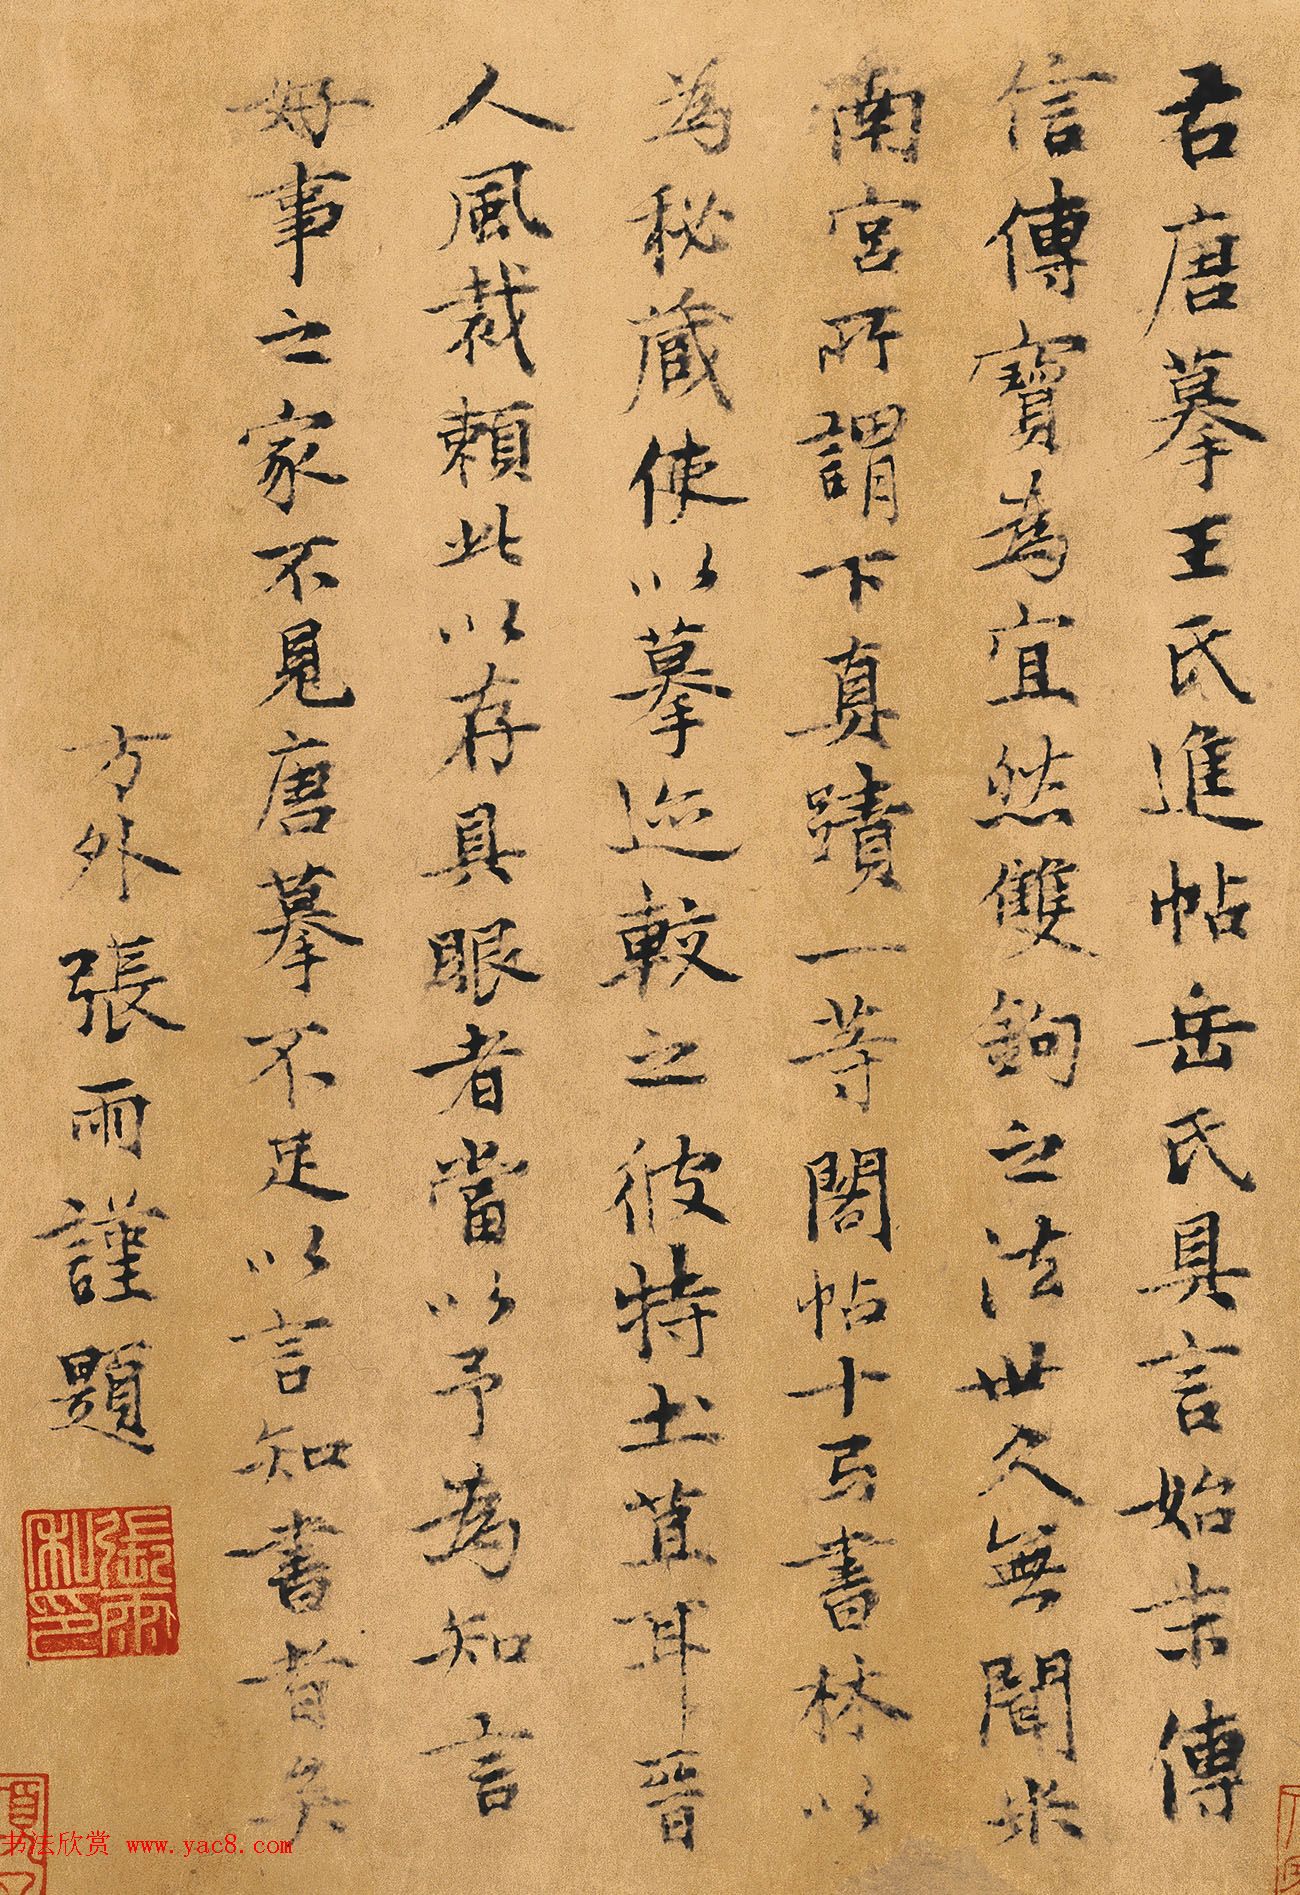 君唐摹王氏進帖岳氏具言始末傳
信傳寶為宜然雙鉤之法世久無聞米
南宮所謂下真蹟一等閣帖十弓書林以
為秘藏使以摹迹較之彼特土苴耳晉
人風裁賴此以存具眼者當以予為知言
好事之家不見唐摹不足以言知書者矣
方外張雨謹題
張雨私印
书法欣赏 www.yac8.com